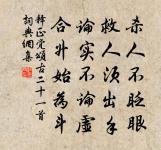 杀人不眨眼
救人须出手
论实不论虚
合升始为斗
释正觉颂古二十一首
词典网集